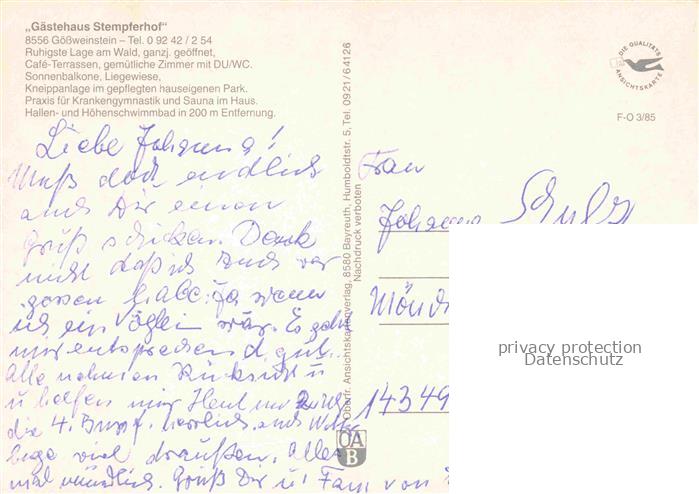 „Gästehaus Stempferhof"
8556 Gößweinstein – Tel. 0 92 42 / 2 54
Ruhigste Lage am Wald, ganzj. geöffnet,
Café-Terrassen, gemütliche Zimmer mit DU/WC.
Sonnenbalkone, Liegewiese,
Kneippanlage im gepflegten hauseigenen Park.
Praxis für Krankengymnastik und Sauna im Haus.
Hallen- und Höhenschwimmbad in 200 m Entfernung.
Liebe Johanna!
Muß doch endlich
auch Dir einen
Gruß schicken. Denk
nicht daß ich Euch ver
gessen habe. Ja wenn
ich ein Vöglein wär. Es geht
mir entsprechend gut.
Alle nehmen Rücksicht u
u helfen mir Heut
die 4. herrlich und
liege viel draußen. Alles
mal mündlich. Grüß Dir u Fam von
Oberfr. Ansichtskartenverlag, 8580 Bayreuth, Humboldtstr. 5, Tel. 09 21 / 6 41 26
Nachdruck verboten
OA
B
DIE QUALITÄTS
ANSICHTSKARTE
F-O 3/85
Frau
Johanna Schulz
Mönch
14349
privacy protection
Datenschutz